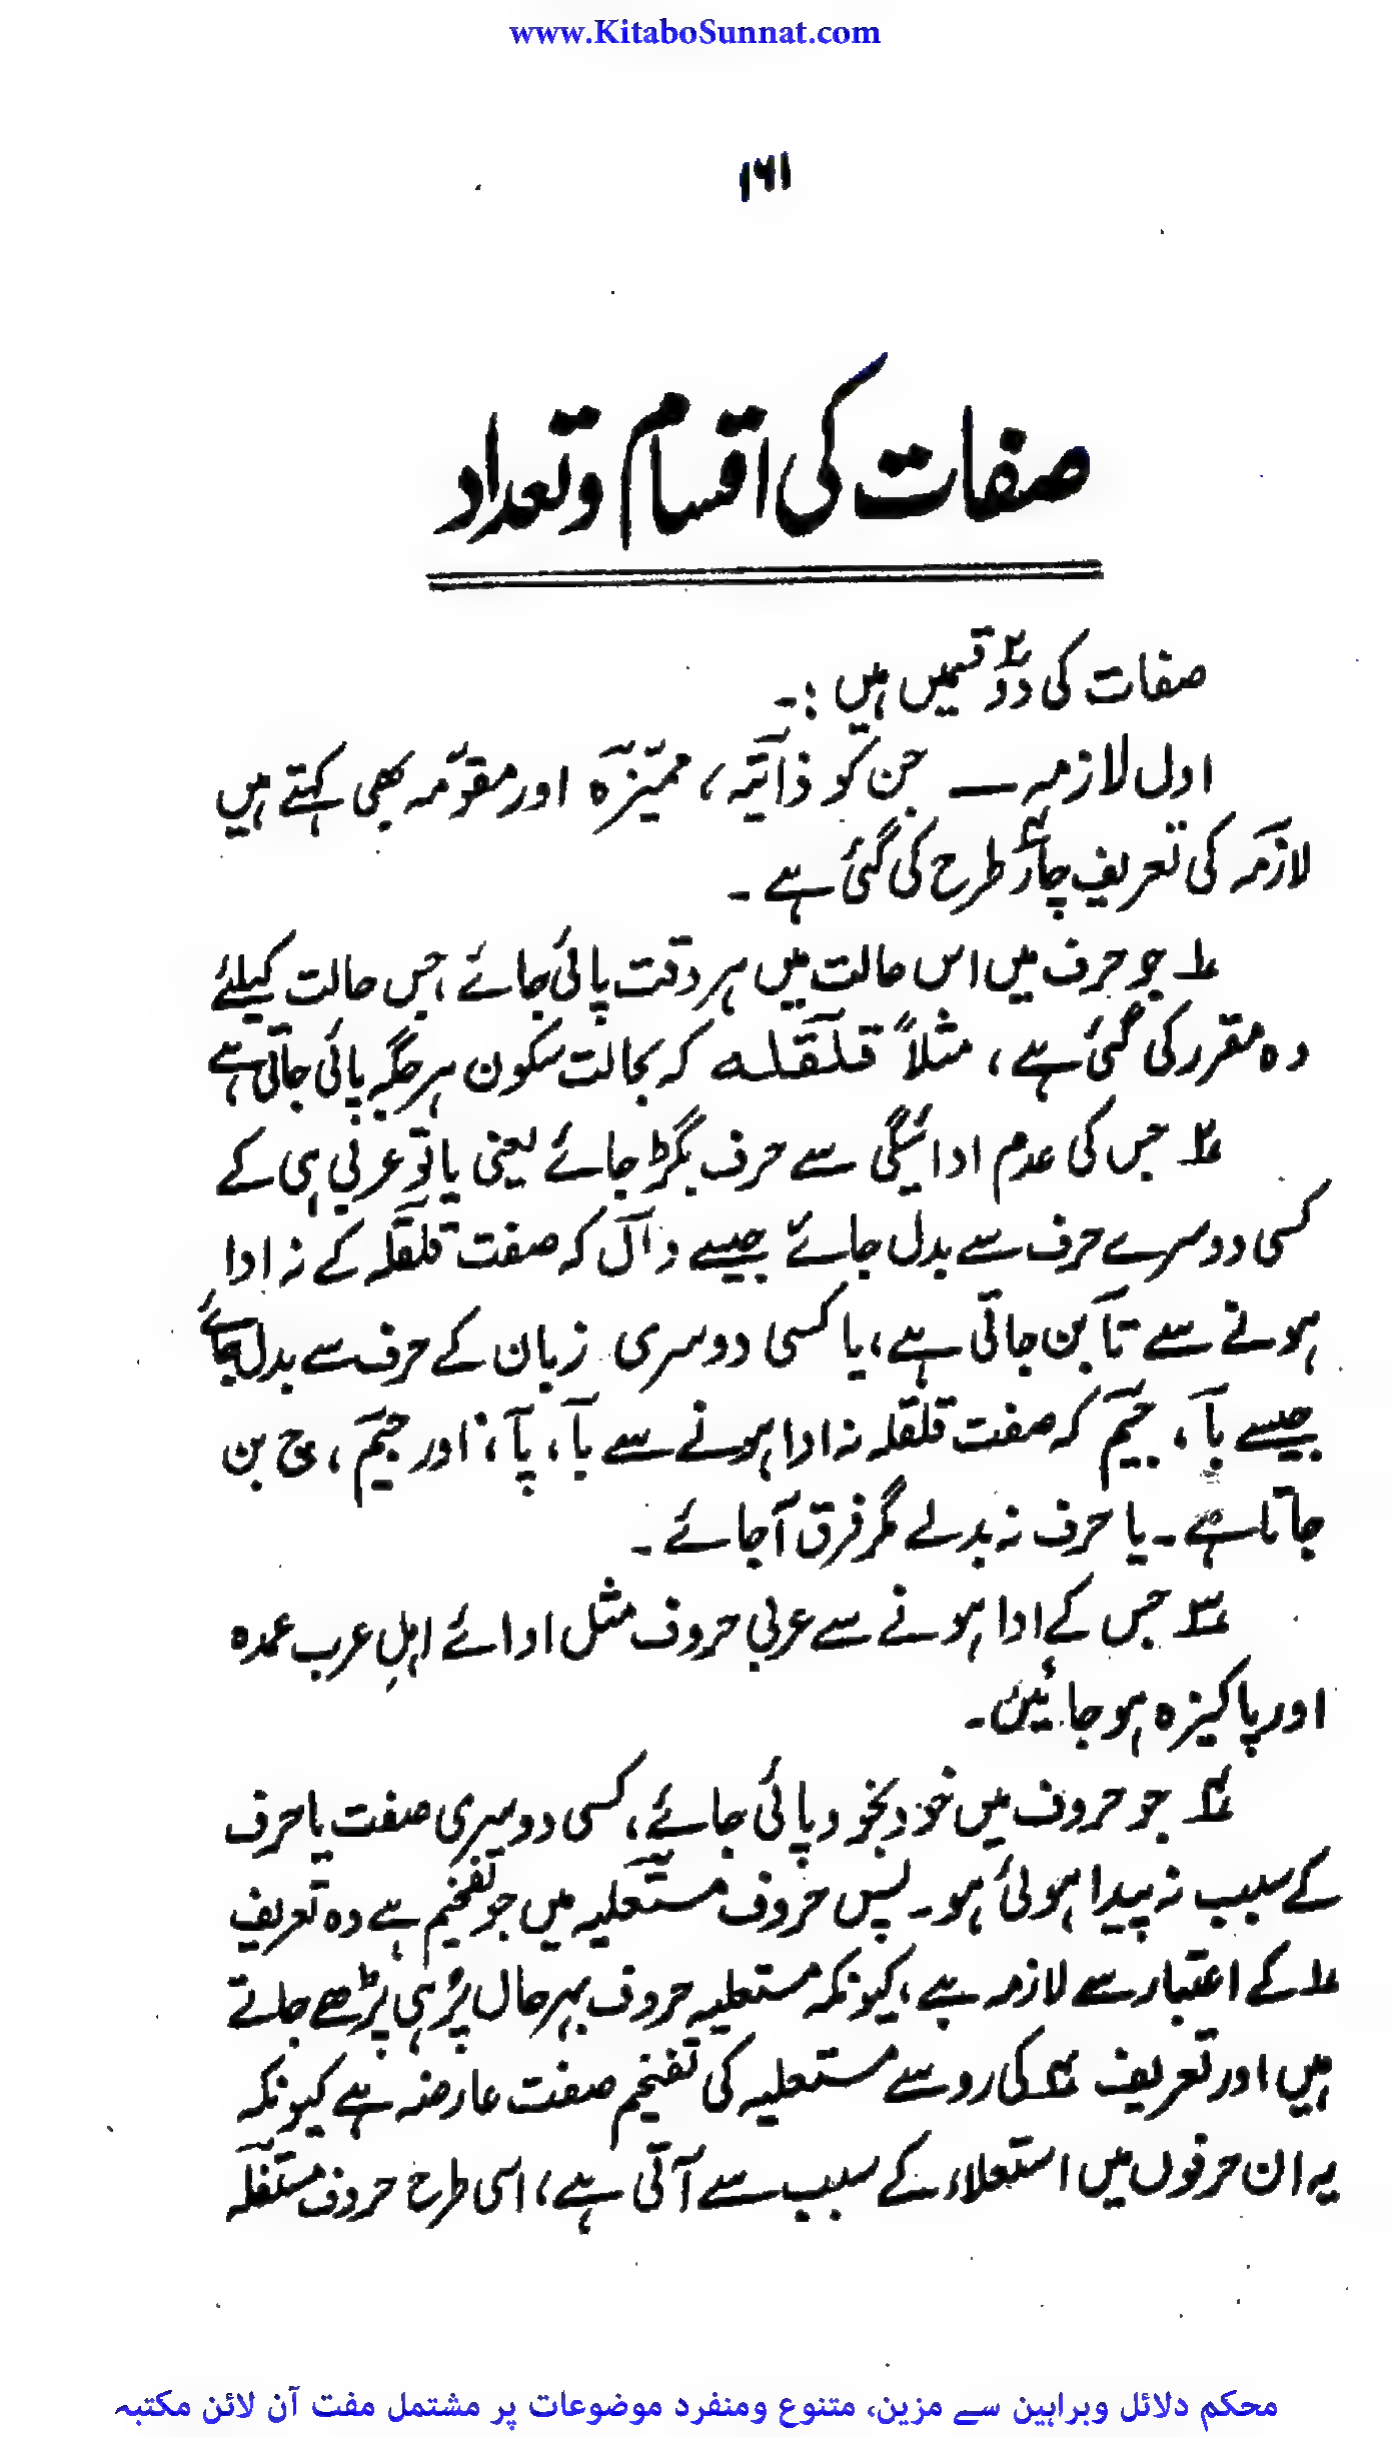 www.KitaboSunnat.com
۱۶۱
صفات کی اقسام و تعداد
صفات کی دو۲ قسمیں ہیں :۔
اول لازمہ — جن کو ذاتیہ، ممیّزہ اور مقوّمہ بھی کہتے ہیں
لازمہ کی تعریف چار۴ طرح کی گئی ہے ۔
؁۱ جو حرف میں اس حالت میں ہر وقت پائی جائے، جس حالت کیلئے
وہ مقرر کی گئی ہے، مثلاً قلقلہ کہ بحالت سکون ہر جگہ پائی جاتی ہے
؁۲ جس کی عدم ادائیگی سے حرف بگڑ جائے یعنی یا تو عربی ہی کے
کسی دوسرے حرف سے بدل جائے جیسے دال کہ صفت قلقلہ کے نہ ادا
ہونے سے تا بن جاتی ہے، یا کسی دوسری زبان کے حرف سے بدل جائے
جیسے بآ، جیم کہ صفت قلقلہ نہ ادا ہونے سے بآ، پآ، اور جیم، چ بن
جاتا ہے ۔ یا حرف نہ بدلے مگر فرق آجائے ۔
؁۳ جس کے ادا ہونے سے عربی حروف مثل ادائے اہلِ عرب عمدہ
اور پاکیزہ ہو جائیں۔
؁۴ جو حروف میں خود بخود پائی جائے، کسی دوسری صفت یا حرف
کے سبب نہ پیدا ہوئی ہو۔ پس حروف مستعلیہ میں جو تفخیم ہے وہ تعریف
؁۱ کے اعتبار سے لازمہ ہے، کیونکہ مستعلیہ حروف بہرحال پُر ہی پڑھے جاتے
ہیں اور تعریف ؁۴ کی رو سے مستعلیہ کی تفخیم صفت عارضہ ہے کیونکہ
یہ ان حرفوں میں استعلاء کے سبب سے آتی ہے، اسی طرح حروف مستفلہ
محکم دلائل وبراہین سے مزین، متنوع ومنفرد موضوعات پر مشتمل مفت آن لائن مکتبہ